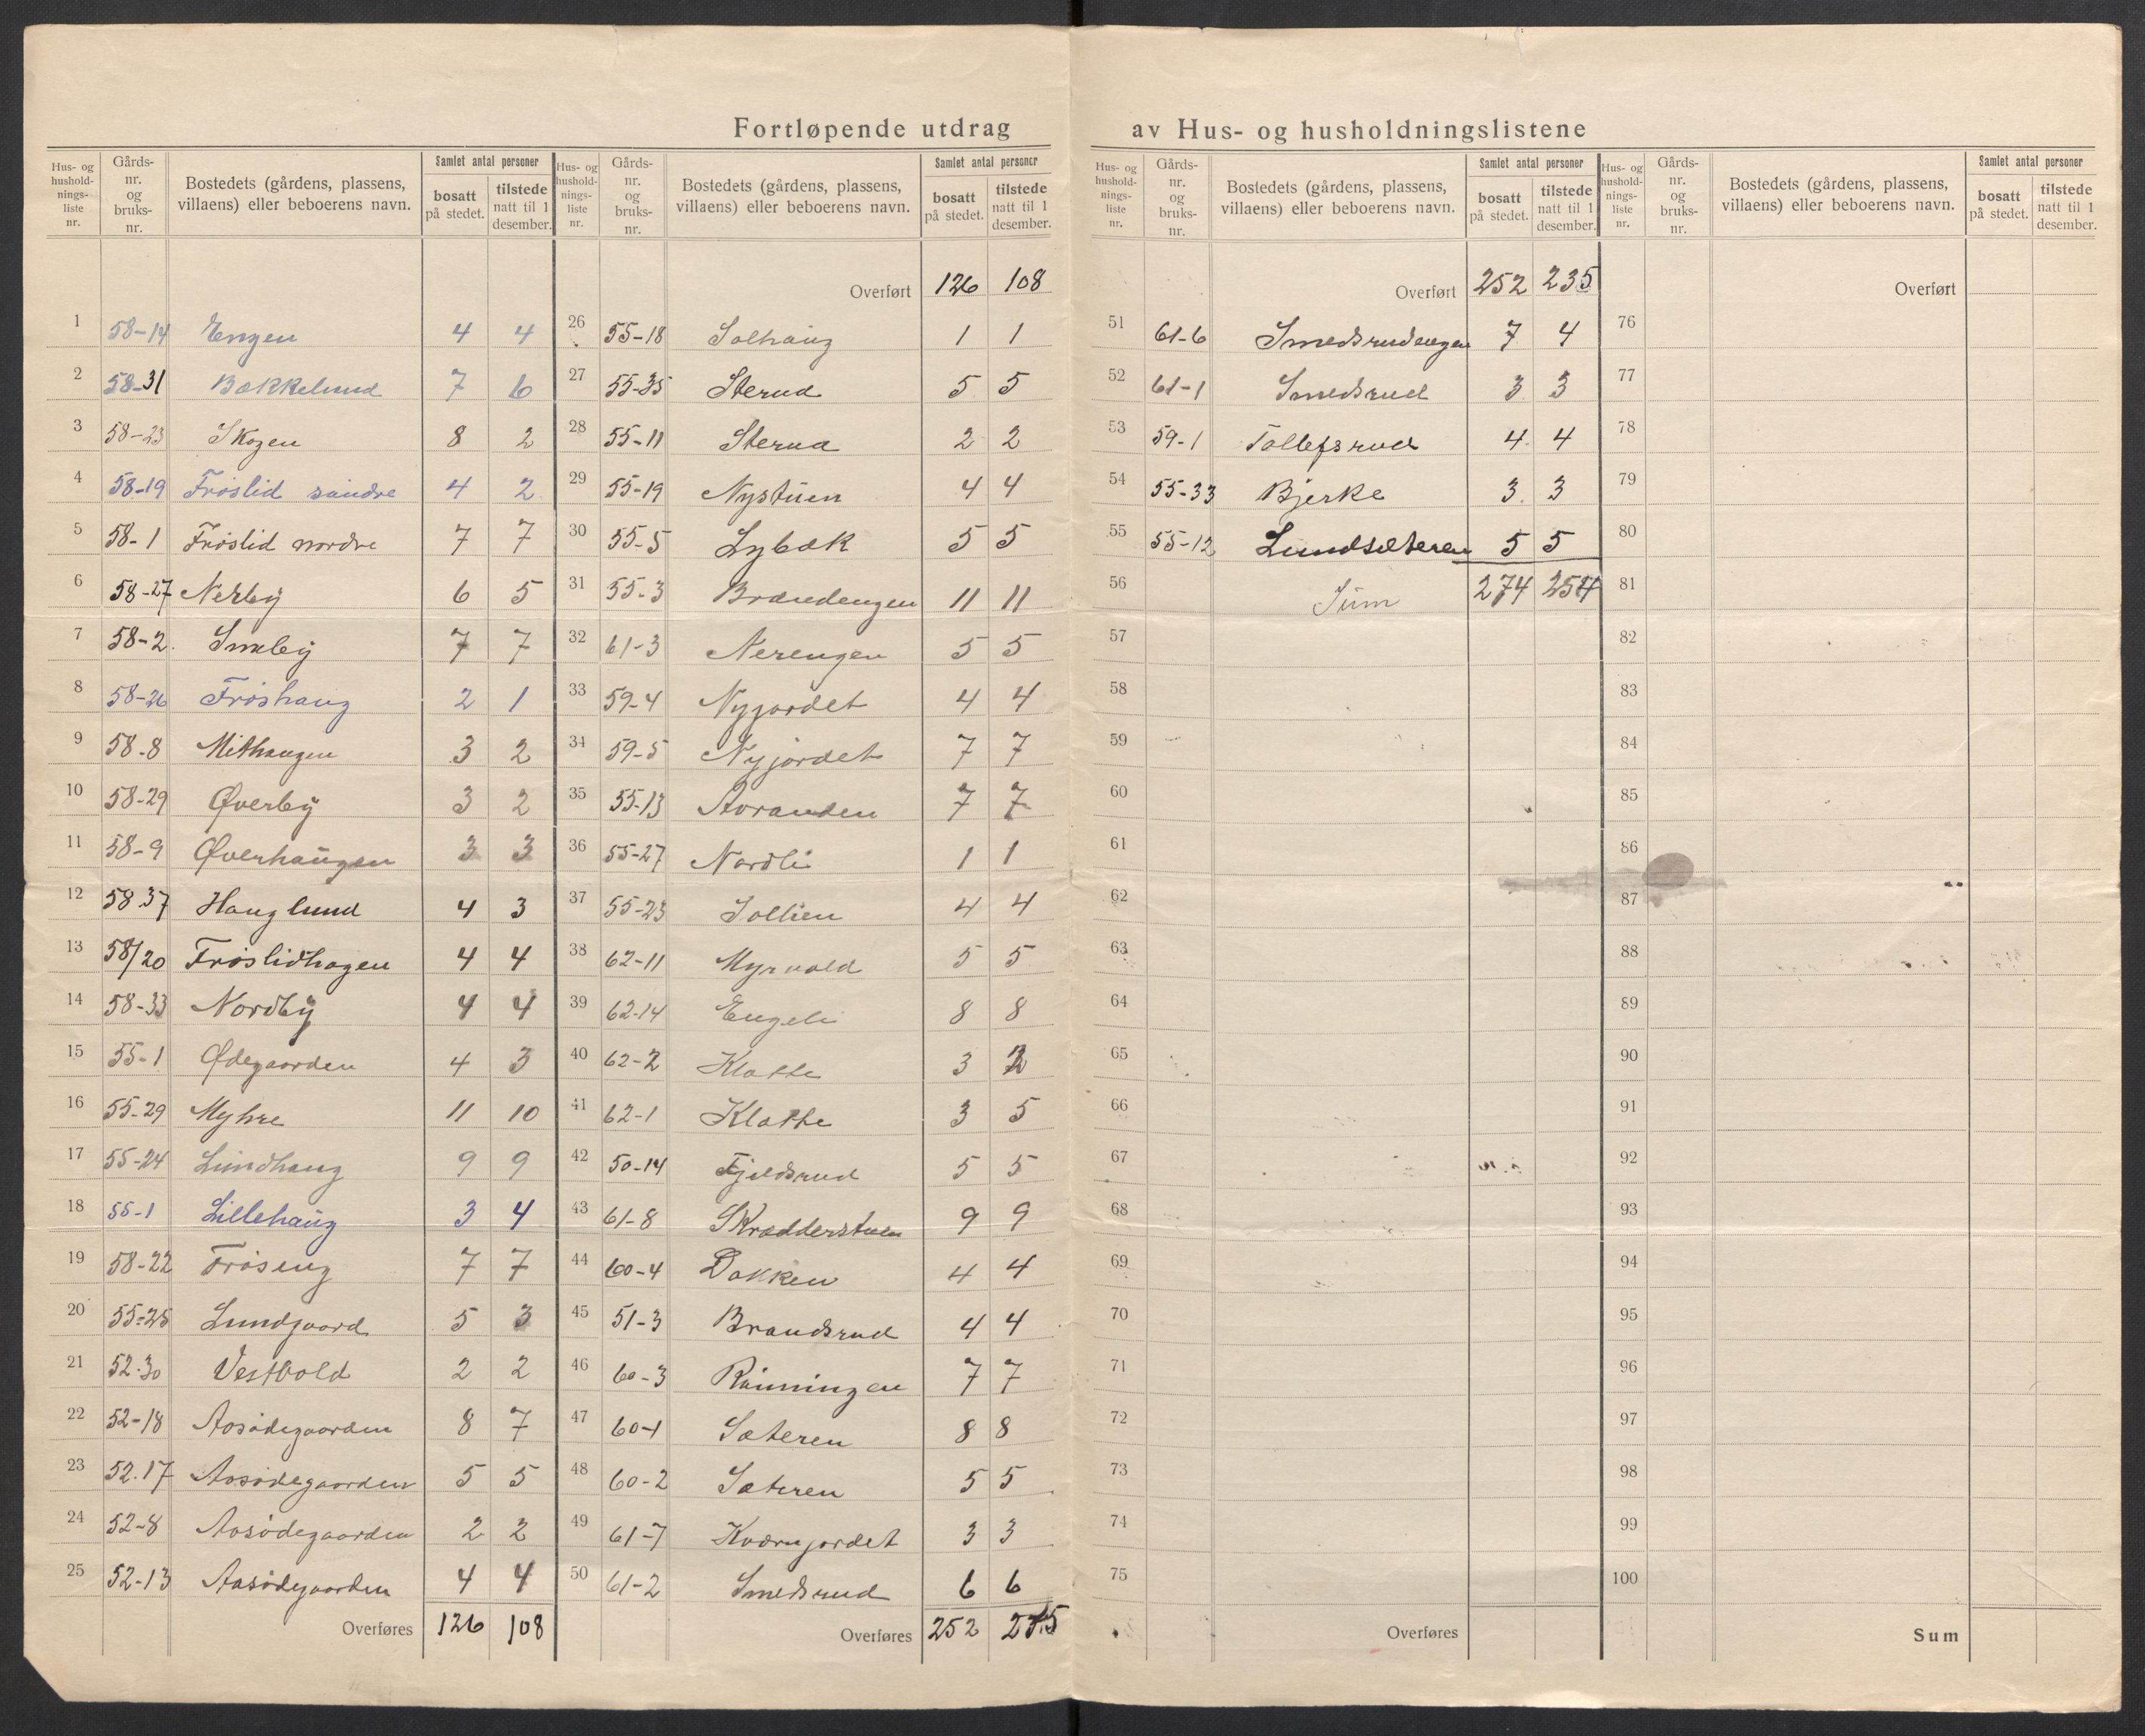 Fortløpende utdrag av Hus- og husholdningslistene
Hus- og hushold-nings-liste nr. Gårds-nr. og bruks-nr. Bostedets (gårdens, plassens, villaens) eller beboerens navn. Samlet antal personer bosatt på stedet. tilstede natt til 1 desember.
1 58-14 Engen 4 4
2 58-31 Bækkelund 7 6
3 58-23 Skogen 8 2
4 58-19 Frøslid søndre 4 2
5 58-1 Frøslid nordre 7 7
6 58-27 Nerby 6 5
7 58-2. Smeby 7 7
8 58-26 Frøshaug 2 1
9 58-8 Mithaugen 3 2
10 58-29 Øverby 3 2
11 58-9 Øverhaugen 3 3
12 58 37 Hauglund 4 3
13 58/20 Frøslidhagen 4 4
14 58-33 Nordby 4 4
15 55-1 Ødegaarden 4 3
16 55-29 Myhre 11 10
17 55-24 Lundhaug 9 9
18 55-1 Lillehaug 3 4
19 58-22 Frøseng 7 7
20 55-25 Lundgaard 5 3
21 52-30 Vestvold 2 2
22 52-18 Aasødegaarden 8 7
23 52.17 Aasødegaarden 5 5
24 52-8 Aasødegaarden 2 2
25 52-13 Aasødegaarden 4 4
Overføres 126 108
Hus- og hushold-nings-liste nr. Gårds-nr. og bruks-nr. Bostedets (gårdens, plassens, villaens) eller beboerens navn. Samlet antal personer bosatt på stedet. tilstede natt til 1 desember.
Overført 126 108
26 55-18 Solhaug 1 1
27 55-35 Sterud 5 5
28 55-11 Sterud 2 2
29 55-19 Nystuen 4 4
30 55-5 Lybæk 5 5
31 55-3 Brændengen 11 11
32 61-3 Nerengen 5 5
33 59-4 Nyjordet 4 4
34 59-5 Nyjordet 7 7
35 55-13 Aoranden 7 7
36 55-27 Nordli 1 1
37 55-23 Sollien 4 4
38 62-11 Myrvold 5 5
39 62-14 Engeli 8 8
40 62-2 Klatte 3
41 62-1 Klatte 3 5
42 50-14 Fjeldsrud 5 5
43 61-8 Skrædderstuen 9 9
44 60-4 Dokken 4 4
45 51-3 Brandsrud 4 4
46 60-3 Rønningen 7 7
47 60-1 Sæteren 8 8
48 60-2 Sæteren 5 5
49 61-7 Kværnjordet 3 3
50 61-2 Smedsrud 6 6
Overføres 252
Hus- og hushold-nings-liste nr. Gårds-nr. og bruks-nr. Bostedets (gårdens, plassens, villaens) eller beboerens navn. Samlet antal personer bosatt på stedet. tilstede natt til 1 desember.
Overført 252 235
51 61-6 Smedsrudengen 7 4
52 61-1 Smedsrud 3 3
53 59-1 Tollefsrud 4 4
54 55-33 Bjerke 3. 3
55 55-12 Lundsæteren 5 5
56 Sum 274 254
57
58
59
60
61
62
63
64
65
66
67
68
69
70
71
72
73
74
75
Overføres
Hus- og hushold-nings-liste nr. Gårds-nr. og bruks-nr. Bostedets (gårdens, plassens, villaens) eller beboerens navn. Samlet antal personer bosatt på stedet. tilstede natt til 1 desember.
Overført
76
77
78
79
80
81
82
83
84
85
86
87
88
89
90
91
92
93
94
95
96
97
98
99
100
Sum